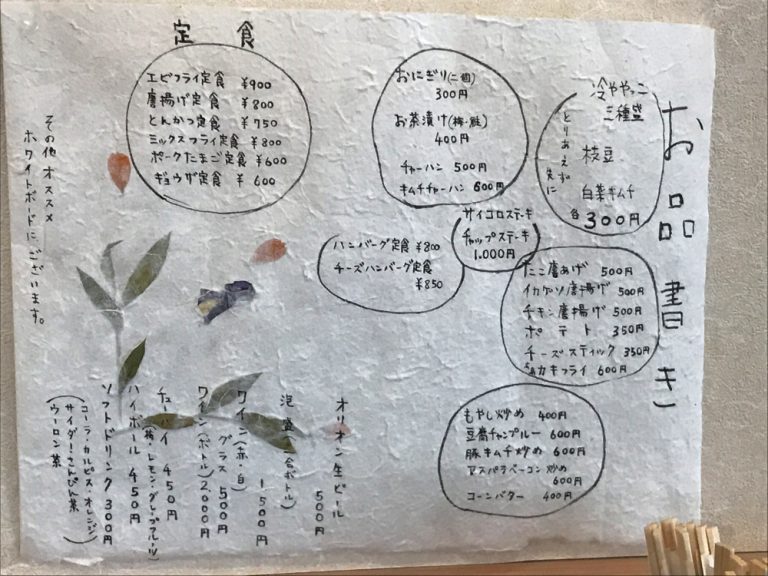 お品書き
とりあえず
先に
冷ややっこ
三種盛
枝豆
白菜キムチ
各300円
おにぎり(二個)
300円
お茶漬け(梅・鮭)
400円
チャーハン 500円
キムチチャーハン 600円
定食
エビフライ定食 ¥900
唐揚げ定食 ¥800
とんかつ定食 ¥750
ミックスフライ定食 ¥800
ポークたまご定食 ¥600
ギョウザ定食 ¥600
サイコロステーキ
チャップステーキ
1.000円
ハンバーグ定食 ¥800
チーズハンバーグ定食
¥850
たこ唐あげ 500円
イカゲソ唐揚げ 500円
チキン唐揚げ 500円
ポテト 350円
チーズスティック 350円
カキフライ 600円
もやし炒め 400円
豆腐チャンプルー 600円
豚キムチ炒め 600円
アスパラベーコン炒め
600円
コーンバター 400円
オリオン生ビール
500円
泡盛(一合ボトル)
1500円
ワイン(赤・白)
グラス 500円
ワイン(ボトル) 2,000円
チューハイ 450円
(梅・レモン・グレープフルーツ)
ハイボール 450円
ソフトドリンク 300円
(コーラ・カルピス・オレンジ
サイダー・さんぴん茶
ウーロン茶)
その他オススメ
ホワイトボードにございます。